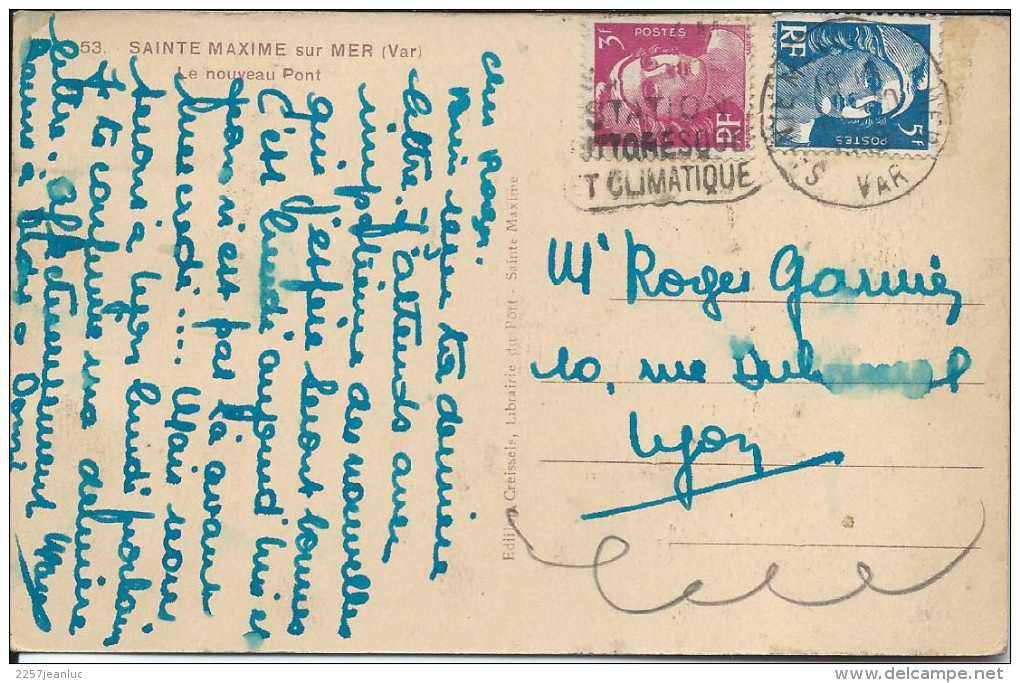 53. SAINTE MAXIME sur MER (Var)
Le nouveau Pont
cher Roger.
Bien reçu ta dernière
lettre. J'attends avec
impatience des nouvelles
qui j'espère seront bonnes
C'est lundi aujourd'hui et
pas là avant
mercredi.... Mais nous
serons à Lyon lundi prochain
Je te confirme ma dernière
lettre. affectueusement
Edition Creissels, Librairie du Port - Sainte Maxime
3F POSTES RF
RF POSTES 5F
STATION
TTORESQUE
T CLIMATIQUE
VAR
Mr Roger Garnier
10, rue
Lyon
2257jeanluc
delcampe.net